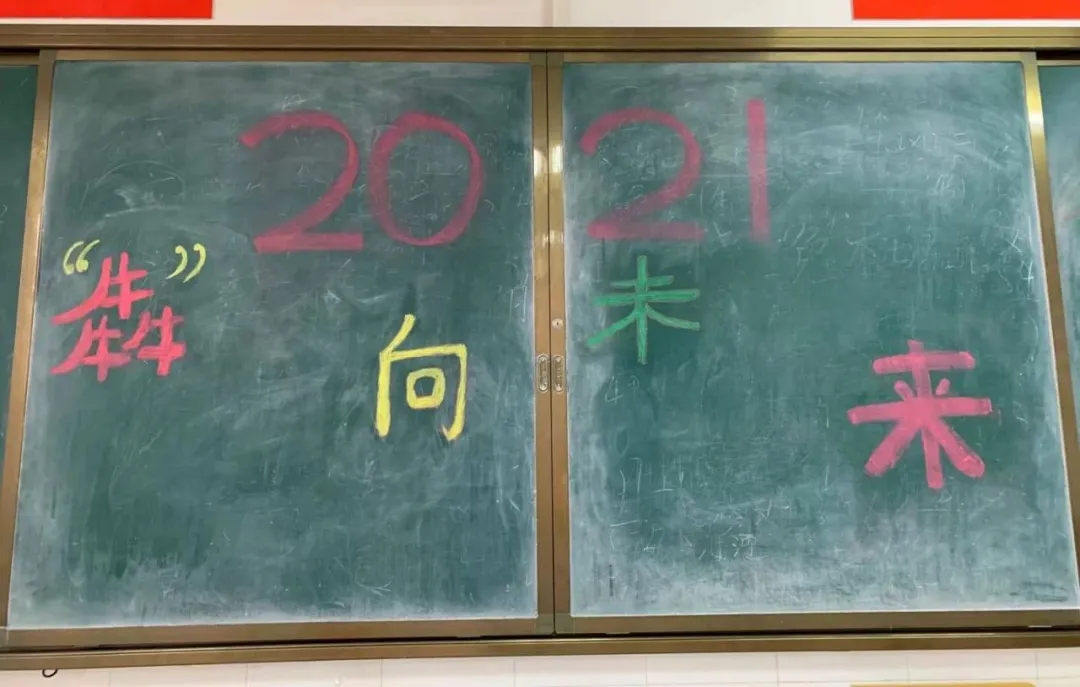 2021
“犇”向未来